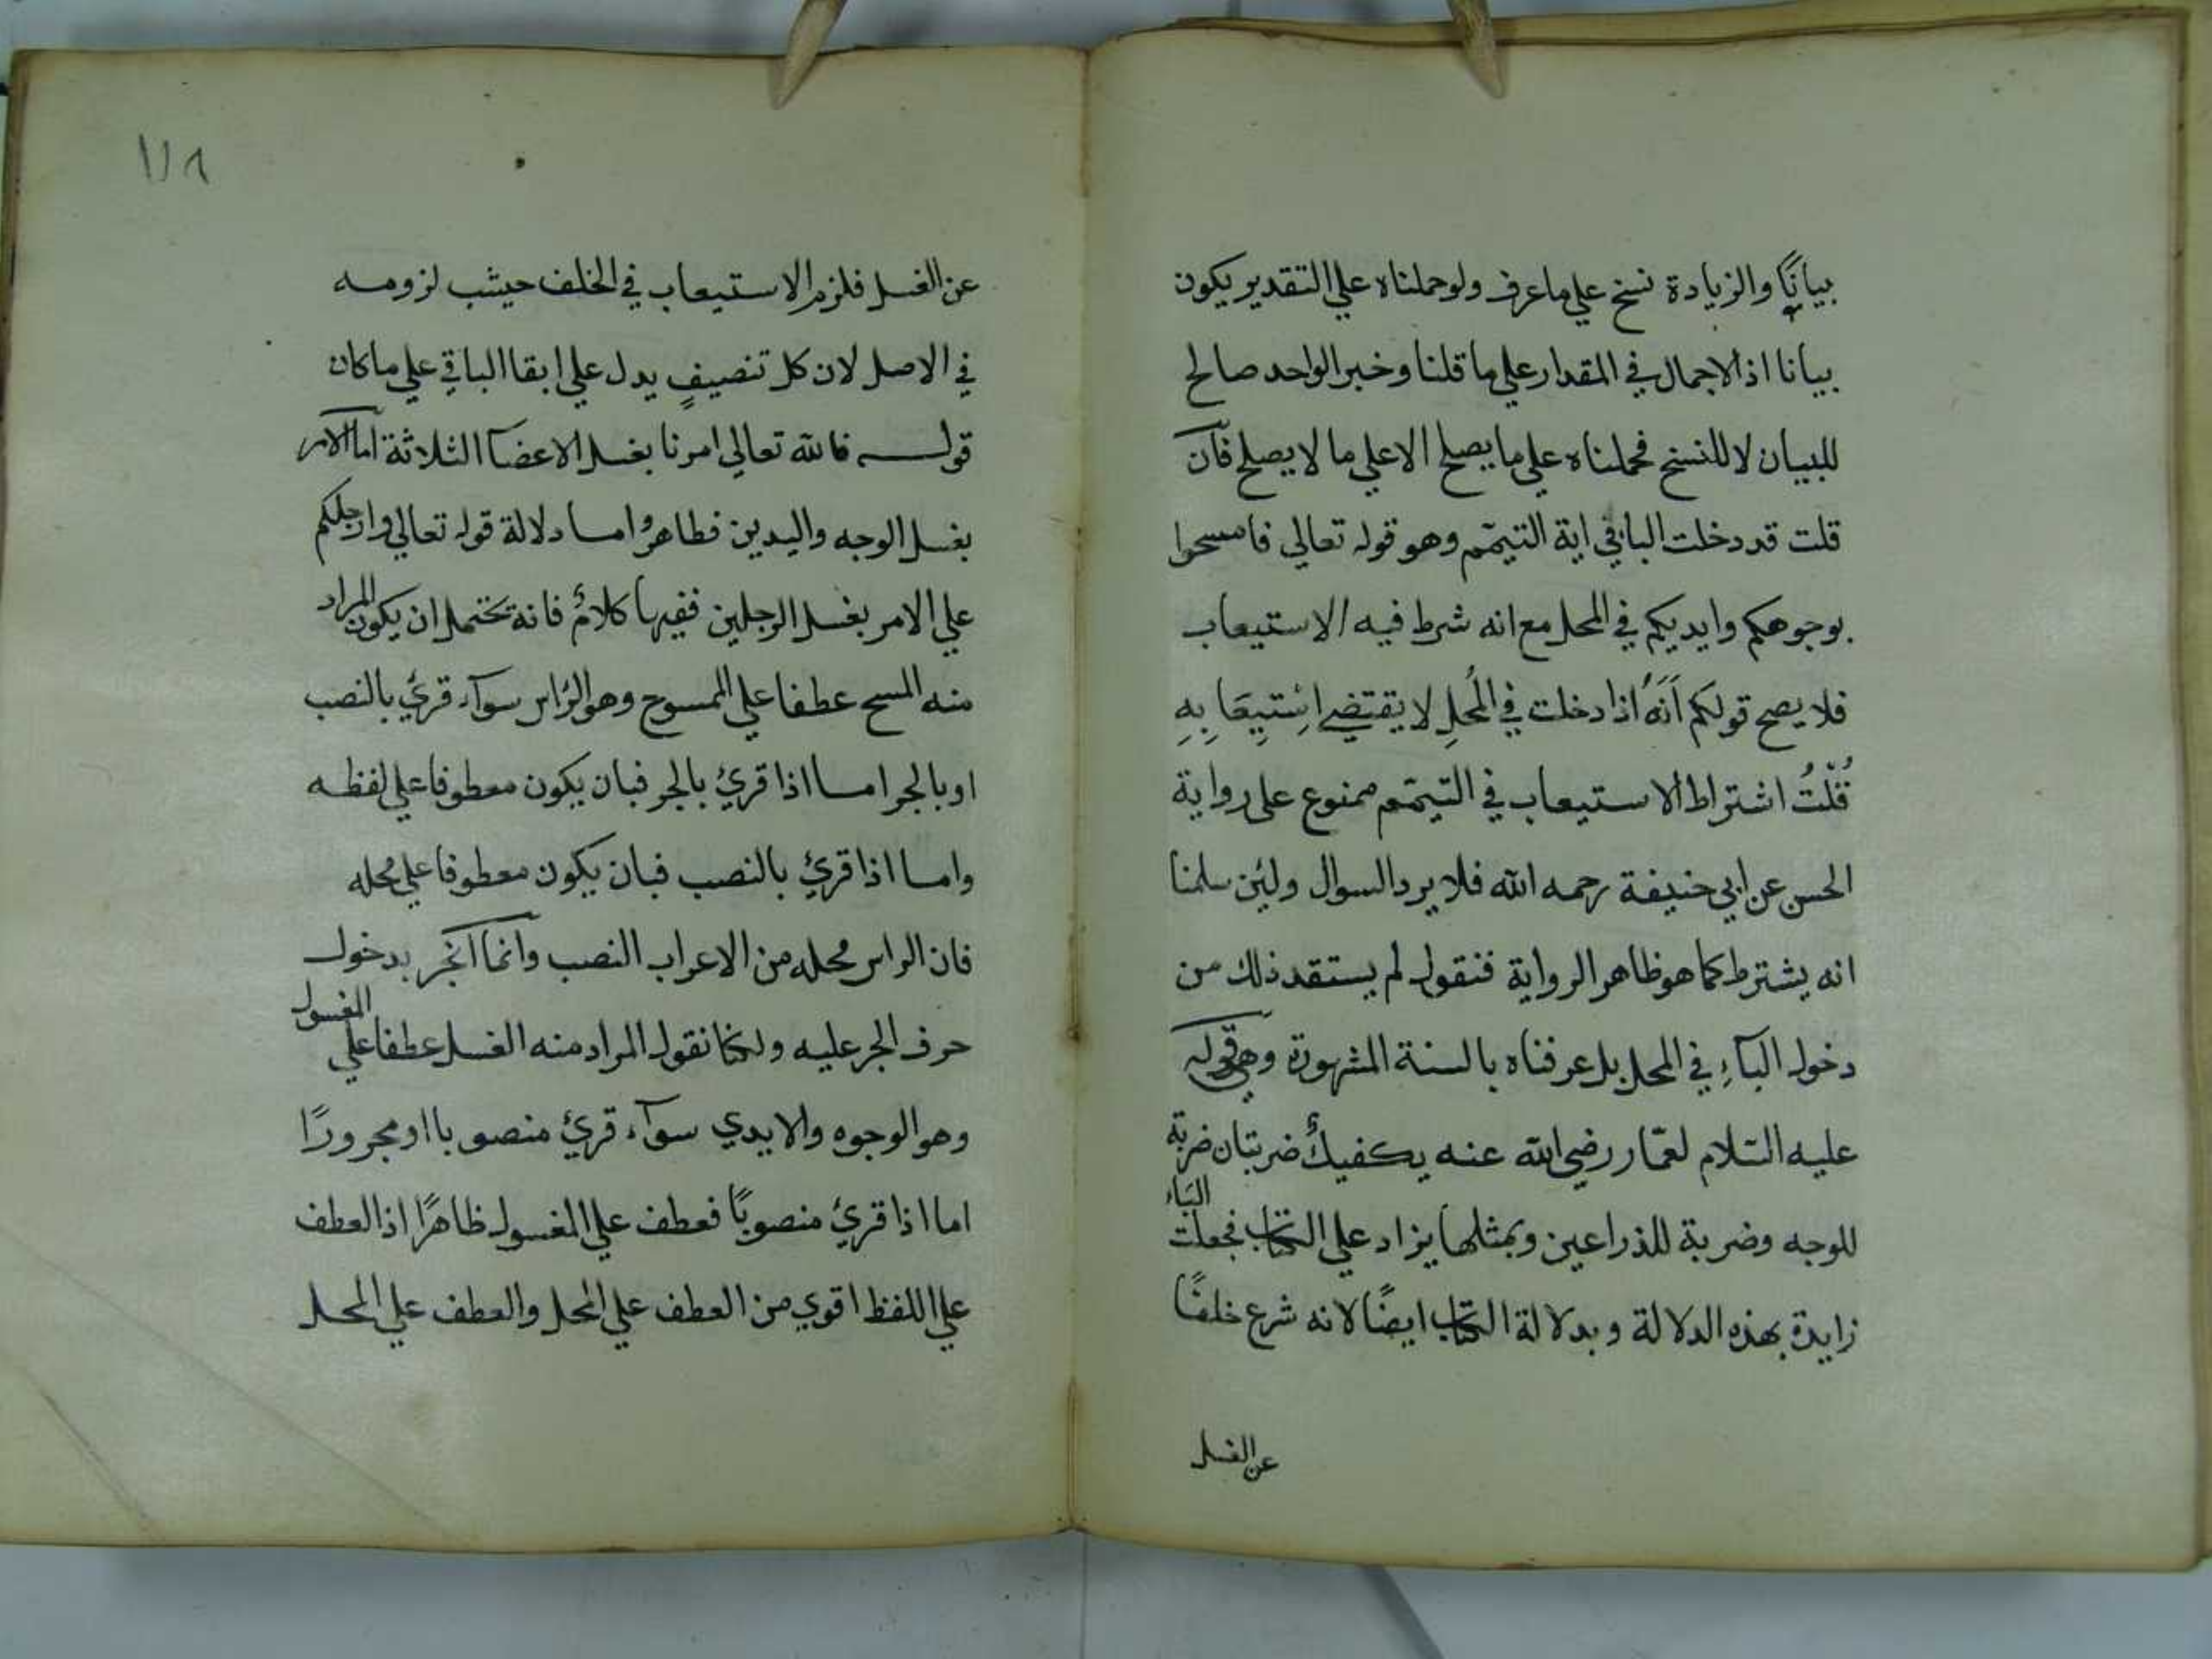 بيانًا والزيادة نسخ علي ما عرف ولو حملناه علي التقدير يكون
بيانا اذ الاجمال في المقدار علي ما قلنا وخبر الواحد صالح
للبيان لا للنسخ فحملناه علي ما يصلح الا علي ما لا يصلح فان
قلت قد دخلت البا في اية التيمّم وهو قوله تعالي فامسحوا
بوجوهكم وايديكم في المحل مع انه شرط فيه الاستيعاب
فلا يصح قولكم اَنَّهُ اذا دخلت في المُحلِ لا يقتضي اسْتِيِعَابِهِ
قُلْتُ اشتراط الاستيعاب في التيمّم ممنوع على رواية
الحسن عن ابي حنيفة رحمه الله فلا يرد السوال ولئن سلمنا
انه يشترط كما هو ظاهر الرواية فنقول لم يستفد ذلك من
دخول البآءِ في المحل بل عرفناه بالسنة المشهورة وهي قوله
عليه السّلام لعمّار رضي الله عنه يكفيكَ ضربتان ضربة
للوجه وضربة للذراعين وبمثلها يزاد علي الكتاب فجعلت الباء
زايدة بهذه الدلالة وبدلالة الكتاب ايضًا لانه شرع خلفًا
عن الغسل
١١٨
عن الغسل فلزم الاستيعاب في الخلف حيثب لزومه
في الاصل لان كل تنصيفٍ يدل علي ابقا الباقي علي ما كان
قوله فالله تعالي امرنا بغسل الاعضآ الثلاثة اما الامر
بغسل الوجه واليدين فظاهر واما دلالة قوله تعالي وارجلكم
علي الامر بغسل الرجلين ففيها كلامٌ فانه يحتمل ان يكون المراد
منه المسح عطفا علي الممسوح وهو الرّاس سوآء قرئ بالنصب
او بالجر اما اذا قرئ بالجر فبان يكون معطوفا علي لفظه
واما اذا قرئ بالنصب فبان يكون معطوفا علي محله
فان الراس محله من الاعراب النصب وانما انجر بدخول
حرف الجر عليه ولكنا نقول المراد منه الغسل عطفا علي المغسول
وهو الوجوه والايدي سوآء قرئ منصوبا او مجرورًا
اما اذا قرئ منصوبًا فعطف علي المغسول ظاهرًا اذ العطف
علي اللفظ اقوي من العطف علي المحل والعطف علي المحل